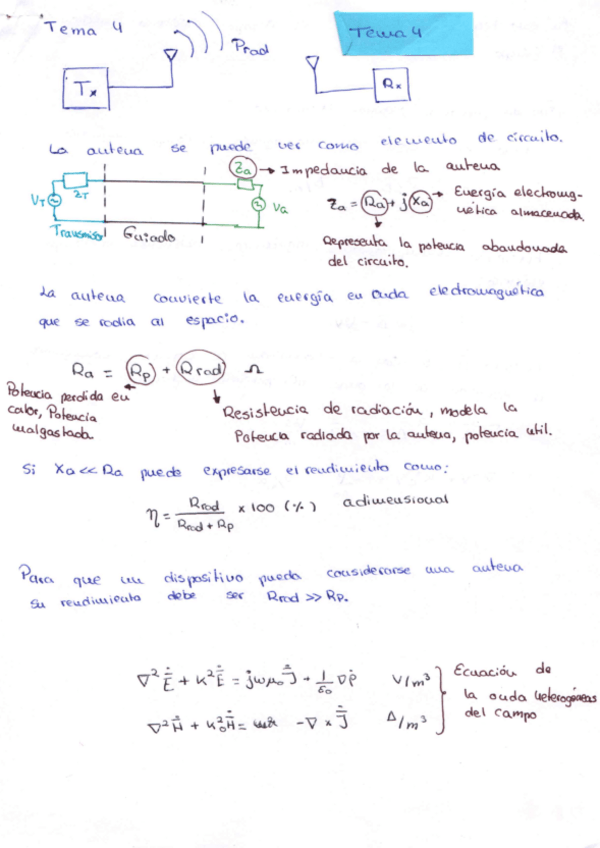 Tema 4
Prad
Tema 4
Tx
Rx
La antena se puede ver como elemento de circuito.
Za → Impedancia de la antena
VT
ZT
Va
Za = Ra + j Xa → Energía electromag-
nética almacenada.
Transmisor Guiado
Representa la potencia abandonada
del circuito.
La antena convierte la energía en onda electromagnética
que se radia al espacio.
Ra = Rp + Rrad Ω
Potencia perdida en
calor, Potencia
malgastada
Resistencia de radiación, modela la
Potencia radiada por la antena, potencia util.
Si Xa << Ra puede expresarse el rendimiento como:
η = Rrad / (Rrad + Rp) × 100 (%) adimensional
Para que un dispositivo pueda considerarse una antena
su rendimiento debe ser Rrad >> Rp.
∇² Ē + k² Ē = jωμ₀ J̄ + 1/ε₀ ∇ρ V/m³
∇² H̄ + k₀² H̄ = -∇ × J̄ A/m³
Ecuación de
la onda heterogéneas
del campo